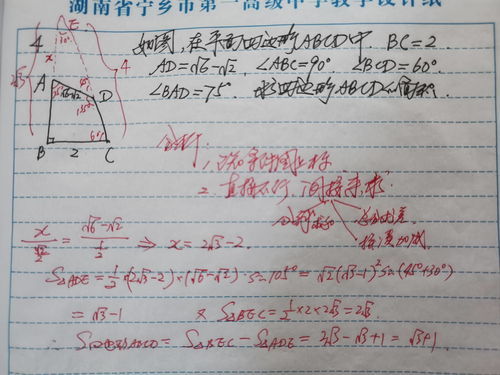 湖南省宁乡市第一高级中学教学设计纸
如图,在平面四边形ABCD中. BC=2.
AD=√6-√2, ∠ABC=90° ∠BCD=60°
∠BAD=75° 求四边形ABCD的面积.
E
4
30°
x
4
2√3
A
75°
√6-√2
45°
135°
D
60°
B
2
C
分析:
1.
2. 直接不行,间接来求
分割求和
x/(√2/2) = (√6-√2)/(1/2) ⇒ x=2√3-2.
S△ADE=1/2·(2√3-2)×(√6-√2)·sin105°=√2(√3-1)²sin(45°+30°)
=√3-1 又 S△BEC=1/2×2×2√3=2√3.
∴ S四边形ABCD = S△BEC - S△ADE = 2√3-√3+1=√3+1